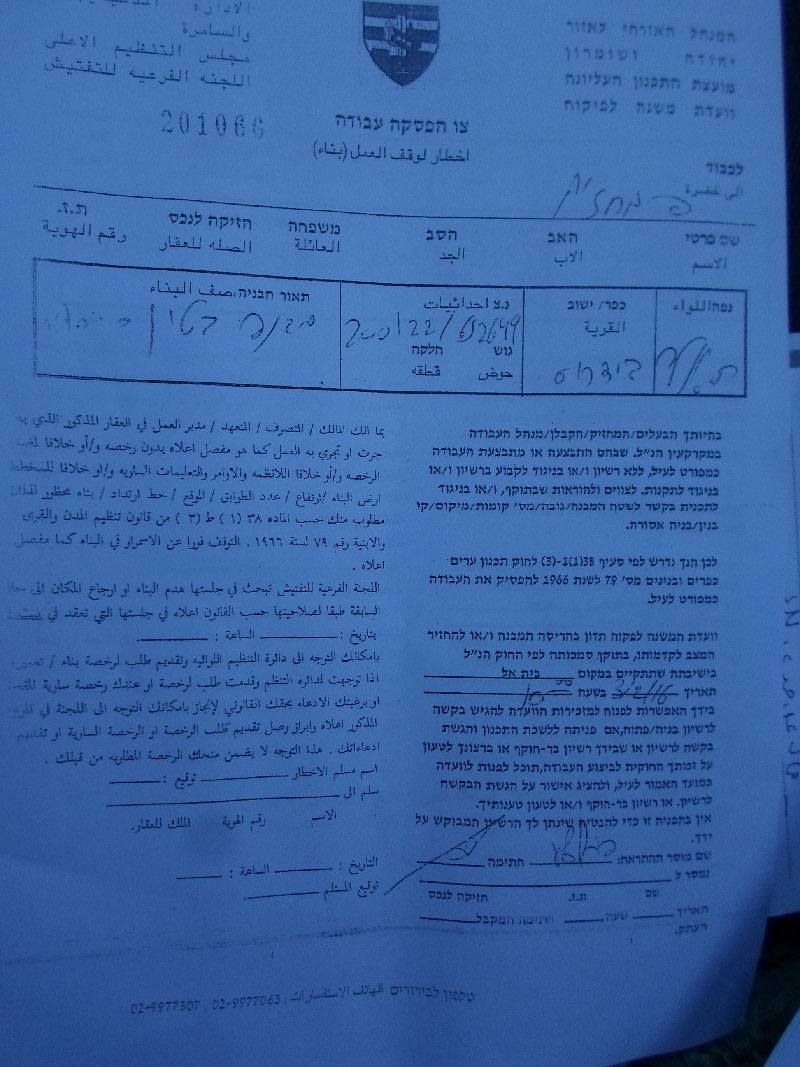 המנהל האזרחי לאזור
יהודה ושומרון
מועצת התכנון העליונה
וועדת משנה לפיקוח
الادارة
والسامرة
مجلس التنظيم الاعلى
اللجنه الفرعيه للتفتيش
201066
צו הפסקה עבודה
اخطار لوقف العمل (بناء)
לכבוד
الى حضرة
שם פרטי האב הסב משפחה הזיקה לנכס ת.ז.
الاسم الاب الجد العائلة الصله للعقار رقم الهوية
נפה/اللواء
כפר/ ישוב
القرية
נ.צ احداثيات
200122/652649
גוש חלקה
حوض قطعه
תאור הבניה/صف البناء
בהיותך הבעלים/המחזיק/הקבלן/מנהל העבודה
במקרקעין הנ"ל. שבהם התבצעה או מתבצעת העבודה
כמפורט לעיל, ללא רשיון ו/או בניגוד לקבוע ברשיון ו/או
בניגוד לתקנות. לצווים ולהוראות שבתוקף, ו/או בניגוד
לתכנית בקשר לשטח המבנה/גובה/מס' קומות/מיקום/קו
בנין/בניה אסורה.
לכן הנך נדרש לפי סעיף 38(1)ו-(3) לחוק תכנון ערים
כפרים ובנינים מס' 79 לשנת 1966 להפסיק את העבודה
כמפורט לעיל.
וועדת המשנה לפיקוח תדון בהריסת המבנה ו/או להחזיר
המצב לקדמותו, בתוקף סמכותה לפי החוק הנ"ל
בישיבתה שתתקיים במקום בית אל
תאריך בשעה
בידך האפשרות לפנות למזכירות הוועדה להגיש בקשה
לרשיון בניה/פתוח,אם פניתה ללשכת התכנון והגשת
בקשה לרשיון או שבידך רשיון בר-תוקף או ברצונך לטעון
על זכותך החוקית לביצוע העבודה,תוכל לפנות לוועדה
במועד האמור לעיל, ולהציג אישור על הגשת הבקשה
לרשיון. או רשיון בר-תוקף ו/או לטעון טענותיך.
אין בהפניה זו כדי להבטיח שינתן לך הרשיון המבוקש על
ידך.
שם מוסר ההתראה: חתימה
נמסר ל
שם ת.ז. הזיקה לנכס
תאריך שעה חתימת המקבל
העתק.
بما انك المالك / المتصرف / المتعهد / مدير العمل في العقار المذكور الذي
جرت او تجري به العمل كما هو مفصل اعلاه بدون رخصه و/أو خلافا
الرخصه و/أو خلافا للانظمه والاوامر والتعليمات الساريه و/او خلافا للمخطط
ارض البناء /ارتفاع / عدد الطوابق / الموقع / خط ارتداد / بناء محظور
مطلوب منك حسب الماده ٣٨ (١) ط (٣) من قانون تنظيم المدن والقرى
والابنية رقم ٧٩ لسنة ١٩٦٦ . التوقف فورا عن الاستمرار في البناء كما مفصل
اعلاه .
اللجنة الفرعية للتفتيش تبحث في جلستها هدم البناء او ارجاع المكان الى
السابقة طبقا لصلاحيتها حسب القانون اعلاه في جلستها التي تعقد في بيت
بتاريخ : الساعة :
بامكانك التوجه الى دائرة التنظيم اللوائيه وتقديم طلب لرخصة بناء /
اذا توجهت لدائره التنظم وقدمت طلب لرخصة او عندك رخصة سارية
او برغبتك الادعاء بحقك القانوني لإنجاز بامكانك التوجه الى اللجنة في
المذكور اعلاه وابراز وصل تقديم طلب الرخصة او الرخصة السارية او تقديم
ادعاءاتك . هذا التوجه لا يضمن منحك الرخصة المطلوبه من قبلك .
اسم مسلم الاخطار توقيع :
سلم الى
الاسم رقم الهوية الملك للعقار.
التاريخ : الساعة :
توقيع المستلم
טלפון לבירורים الهاتف الاستفسارات : 02-9977063 , 02-9977307